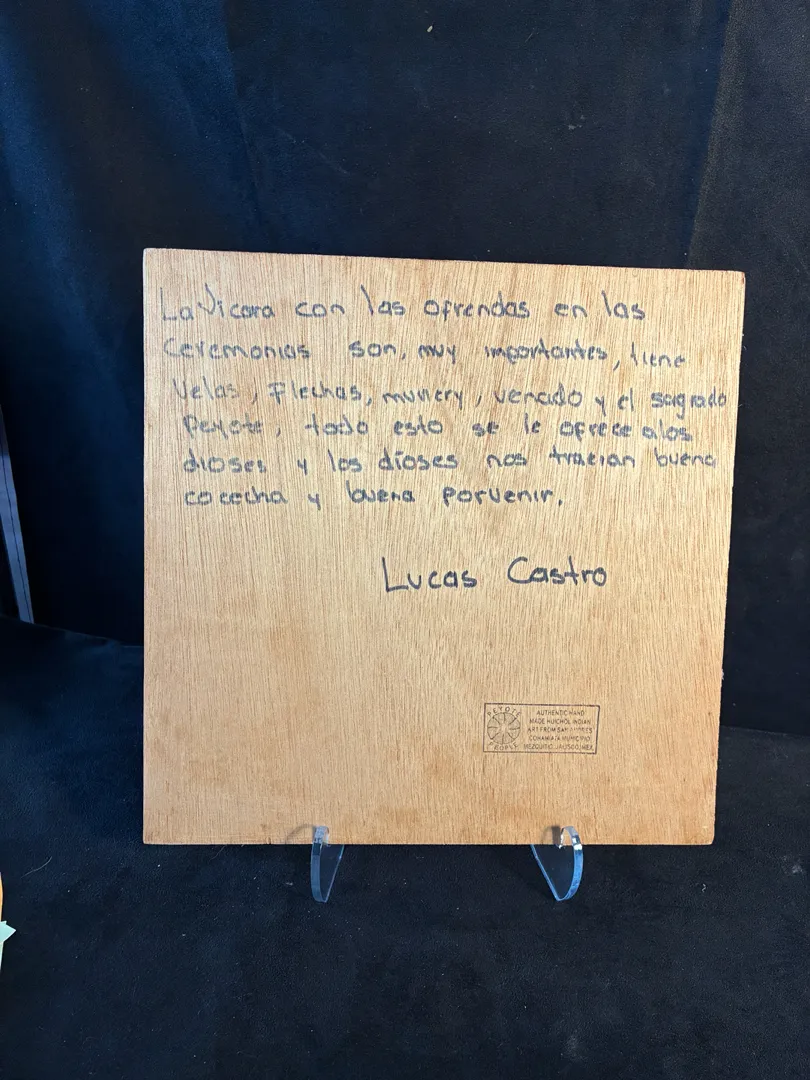 La Jicara con las ofrendas en las
ceremonias son, muy importantes, tiene
velas, flechas, muviery, venado y el sagrado
Peyote, todo esto se le ofrece alos
dioses y los díoses nos traeran buena
cocecha y buena porvenir.
Lucas Castro
PEYOTE
PEOPLE
AUTHENTIC HAND
MADE HUICHOL INDIAN
ART FROM SAN ANDRES
COHAMIATA MUNICIPIO
MEZQUITIC JALISCO, MEX.